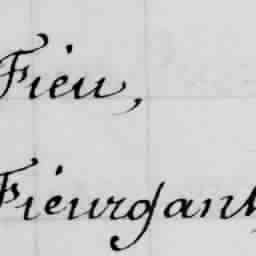 Fieu,
Fieurgant